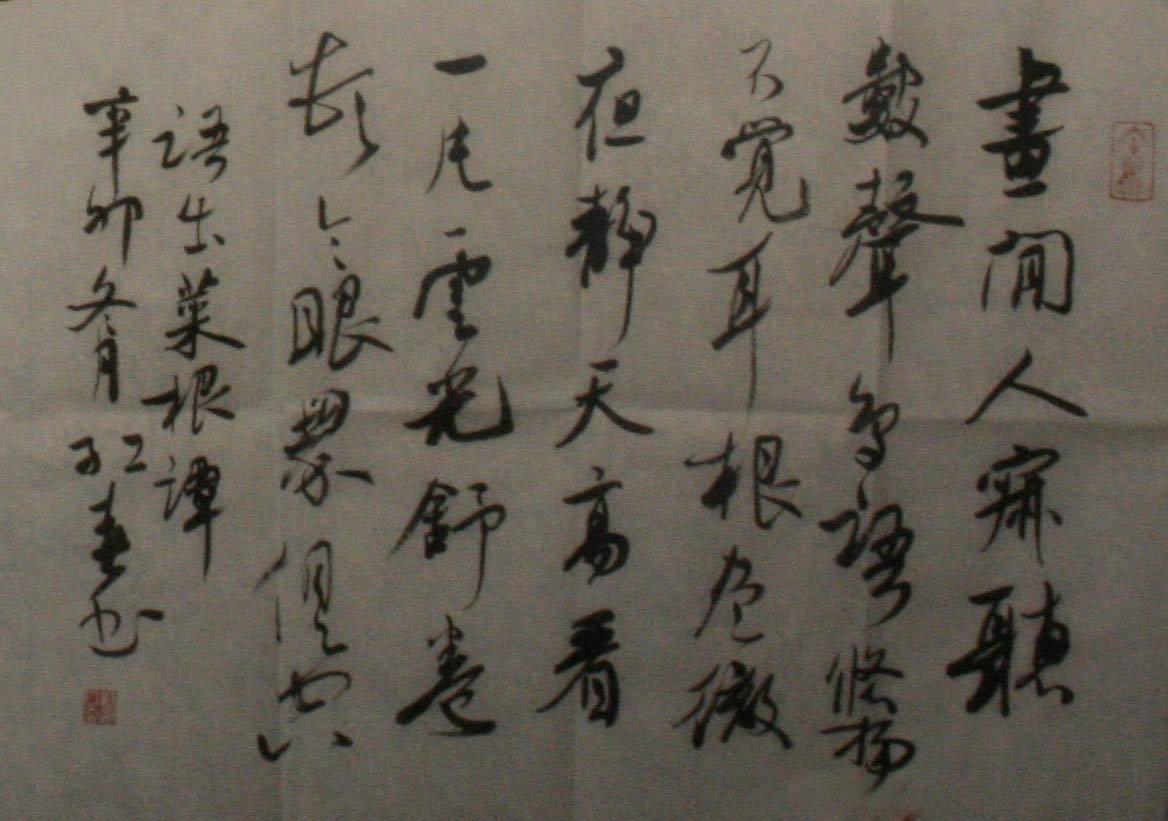 晝間人寂聽
數聲鸟語悠揚
不覺耳根尽徹
夜靜天高看
一片雲光舒卷
頓令眼界俱空
語出菜根譚
辛卯冬月红春书